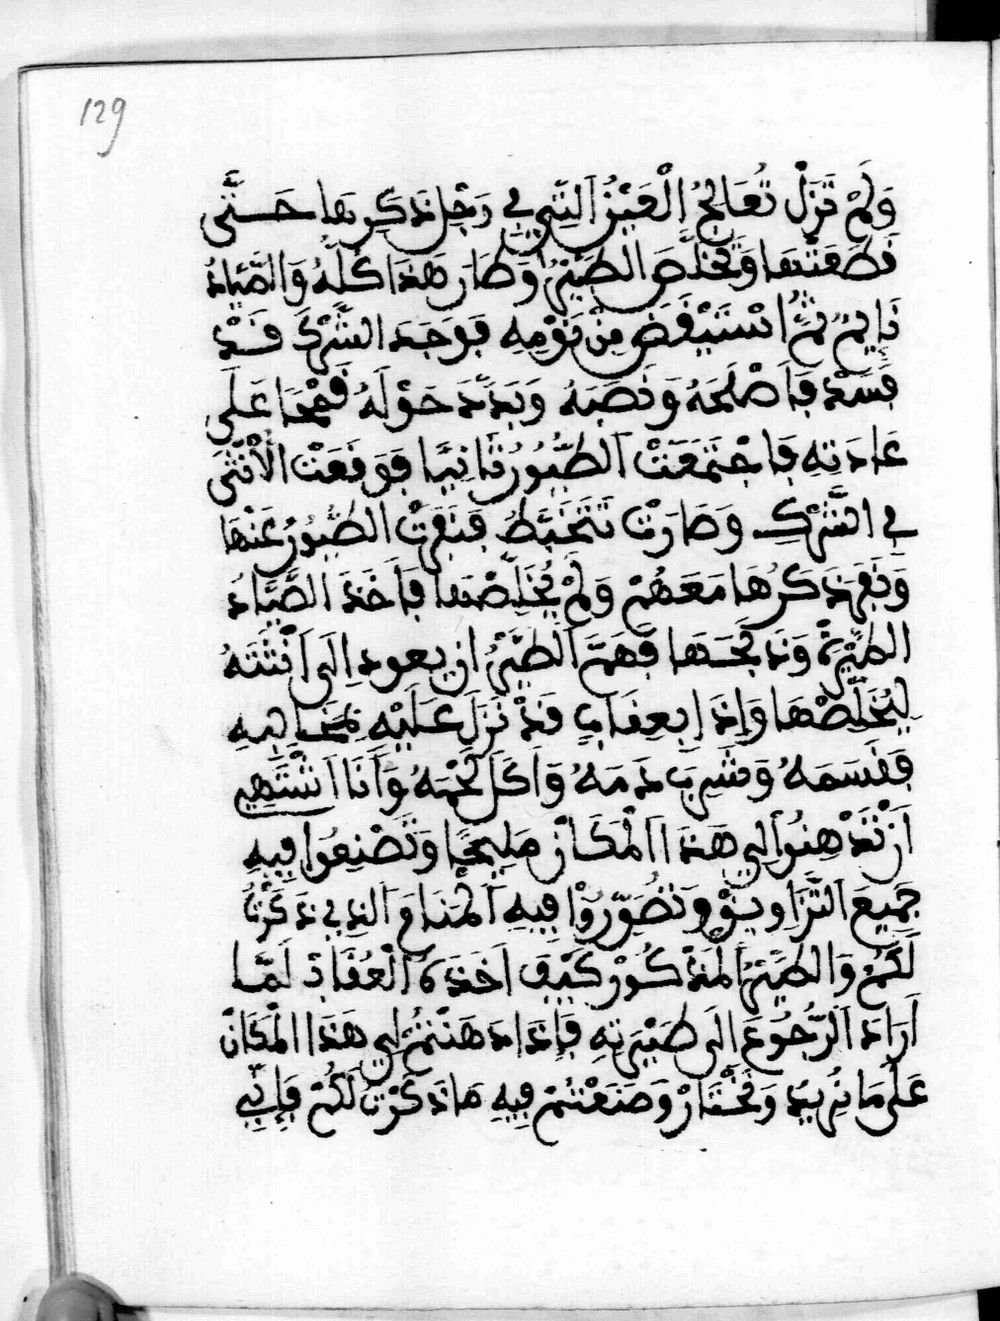 129
وَلَمْ تَزَلْ تُعَالِجُ الْعَيْنَ التِي في رَجْلِ ذَكَرِهَا حَتَّى
قَطَعَتْهَا وَتَخَلَّصَ الطَّيْرُ وَطَارَ هَذَا كُلُّهُ وَالصَّيَّادُ
نَايِمٌ ثُمَّ اسْتَيْقَضَ مِنْ نَوْمِهِ فَوَجَدَ الشَّرَكَ قَدْ
فَسَدْ فَاَصْلَحَهُ وَنَصَبَهُ وَبَدَّدَ حَوْلَهُ قَمْحَا عَلَى
عَادَتِهِ فَاجْتَمَعَتْ الطُّيُورُ ثَانِيًا فَوَقَعَتْ الْأُنْثَى
في الشَّرَكِ وَصَارَتْ تَتَخَبَّطُ فَنَفَرَتْ الطُّيُورُ عَنْهَا
وَنَفَرَ ذَكَرُهَا مَعَهُمْ وَلَمْ يُخَلِّصْهَا فَاَخَذَ الصَّيَّادُ
الطَّيْرَةَ وَذَبَحَهَا فَهَمَّ الطَّيْرُ ان يعود اِلَى اُنْثَتَهُ
لِيُخَلِّصْهَا وَاِذَا بِعِقَابٍ قَدْ نَزَلَ عَلَيْهِ بِمَخَالِبِهِ
فَقَسَمَهُ وَشَرِبَ دَمَهُ وَاَكَلَ لَحْمَهُ وَاَنَا اَشْتَهِي
اَنْ تَدْهِنُوا لِي هَذَا الْمَكَانْ مَلِيحًا وَتَصْنِعُوا فِيهِ
جَمِيعَ التَّزَاوِيقْ وَتُصَوِّرُوْا فِيهِ الْمَنَامَ الذِي ذَكَرْتُ
لَكُمْ وَالطَّيْرَ الْمَذْكُورْ كَيْفَ اَخَذَهُ الْعُقَابْ لَمَّا
اَرَادَ الرُّجُوعَ الَى طَيْرَتِهِ فَاِذَا دَهَنْتُمْ لِي هَذَا الْمَكَانْ
عَلَى مَا نُرِيدْ وَنَخْتَارْ وَصَنَعْتُمْ فِيهِ مَا ذَكَرْتُ لَكُمْ فَاِنِّي